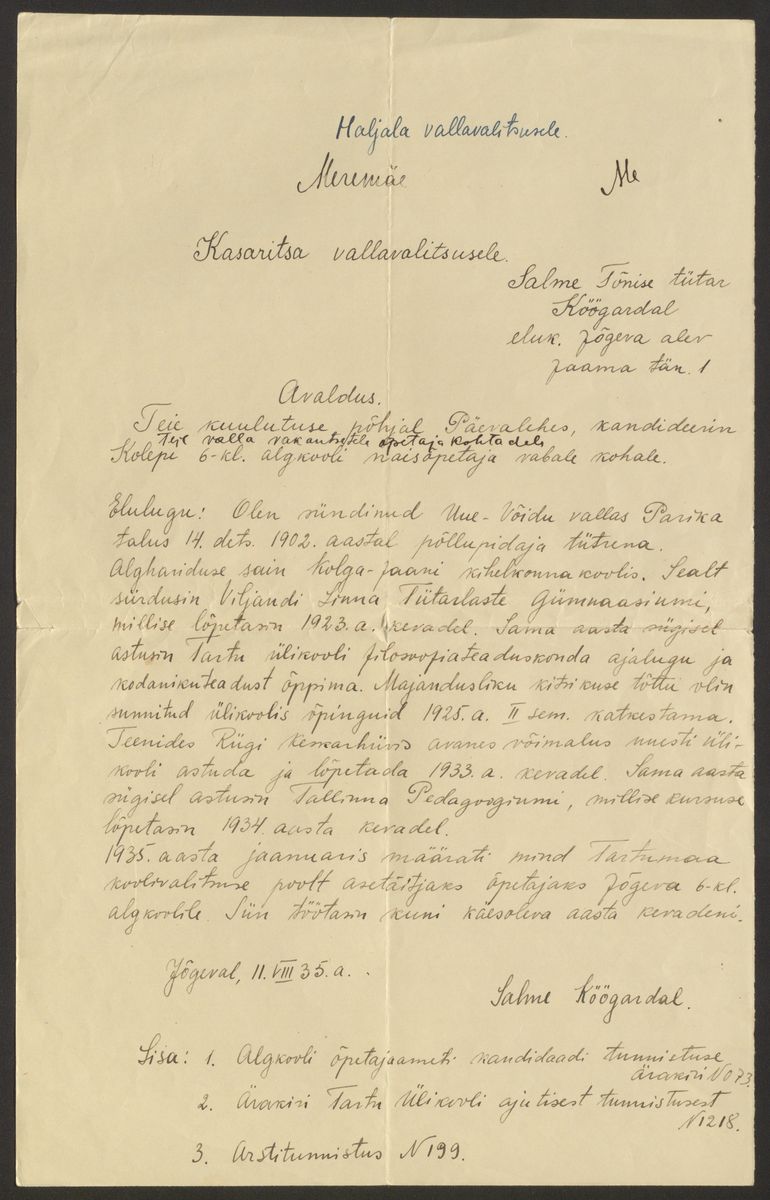 Haljala vallavalitsusele.
Meremäe Me
Kasaritsa vallavalitsusele.
Salme Tõnise tütar
Köögardal
eluk. Jõgeva alev
Jaama tän. 1
Avaldus.
Teie kuulutuse põhjal Päevalehes, kandideerin
teie valla vakantsetele õpetaja kohtadele
Kolepi 6-kl. algkooli naisõpetaja vabale kohale.
Elulugu: Olen sündinud Uue-Võidu vallas Parika
talus 14. dets. 1902. aastal põllupidaja tütrena.
Alghariduse sain Kolga-Jaani kihelkonnakoolis. Sealt
siirdusin Viljandi Linna Tütarlaste Gümnaasiumi,
millise lõpetasin 1923.a. kevadel. Sama aasta sügisel
astusin Tartu ülikooli filosoofiateaduskonda ajalugu ja
kodanikuteadust õppima. Majandusliku kitsikuse tõttu olin
sunnitud ülikoolis õpinguid 1925.a. II sem. katkestama.
Teenides Riigi Keskarhiivis avanes võimalus uuesti üli-
kooli astuda ja lõpetada 1933.a. kevadel. Sama aasta
sügisel astusin Tallinna Pedagoogiumi, millise kursuse
lõpetasin 1934. aasta kevadel.
1935. aasta jaanuaris määrati mind Tartumaa
koolivalitsuse poolt asetäitjaks õpetajaks Jõgeva 6-kl.
algkoolile. Siin töötasin kuni käesoleva aasta kevadeni.
Jõgeval, 11. VIII 35.a.
Salme Köögardal.
Lisa: 1. Algkooli õpetajaameti kandidaadi tunnistuse
ärakiri No 73.
2. Ärakiri Tartu Ülikooli ajutisest tunnistusest
N 1218.
3. Arstitunnistus N 199.